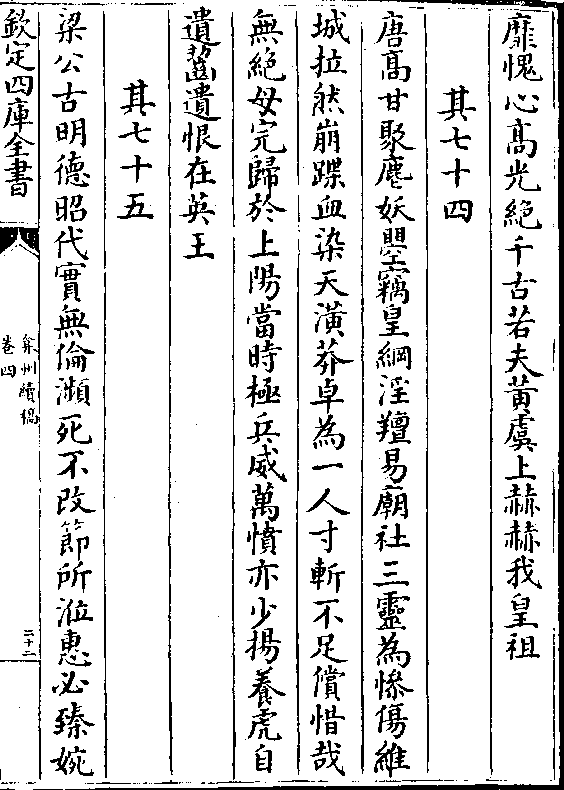 靡愧心高光絶千古若夫黄虞上赫赫我皇祖
其七十四
唐髙甘聚麀妖曌竊皇綱淫羶易廟社三靈為慘傷維
城拉然崩蹀血染天潢莽卓為一人寸斬不足償惜哉
無絶母完歸於上陽當時極兵威萬憤亦少揚養虎自
遺齧遺恨在英王
其七十五
梁公古明德昭代實無倫瀕死不改節所涖惠必臻婉
欽定四庫全書
弇州續稿
卷四
二十二